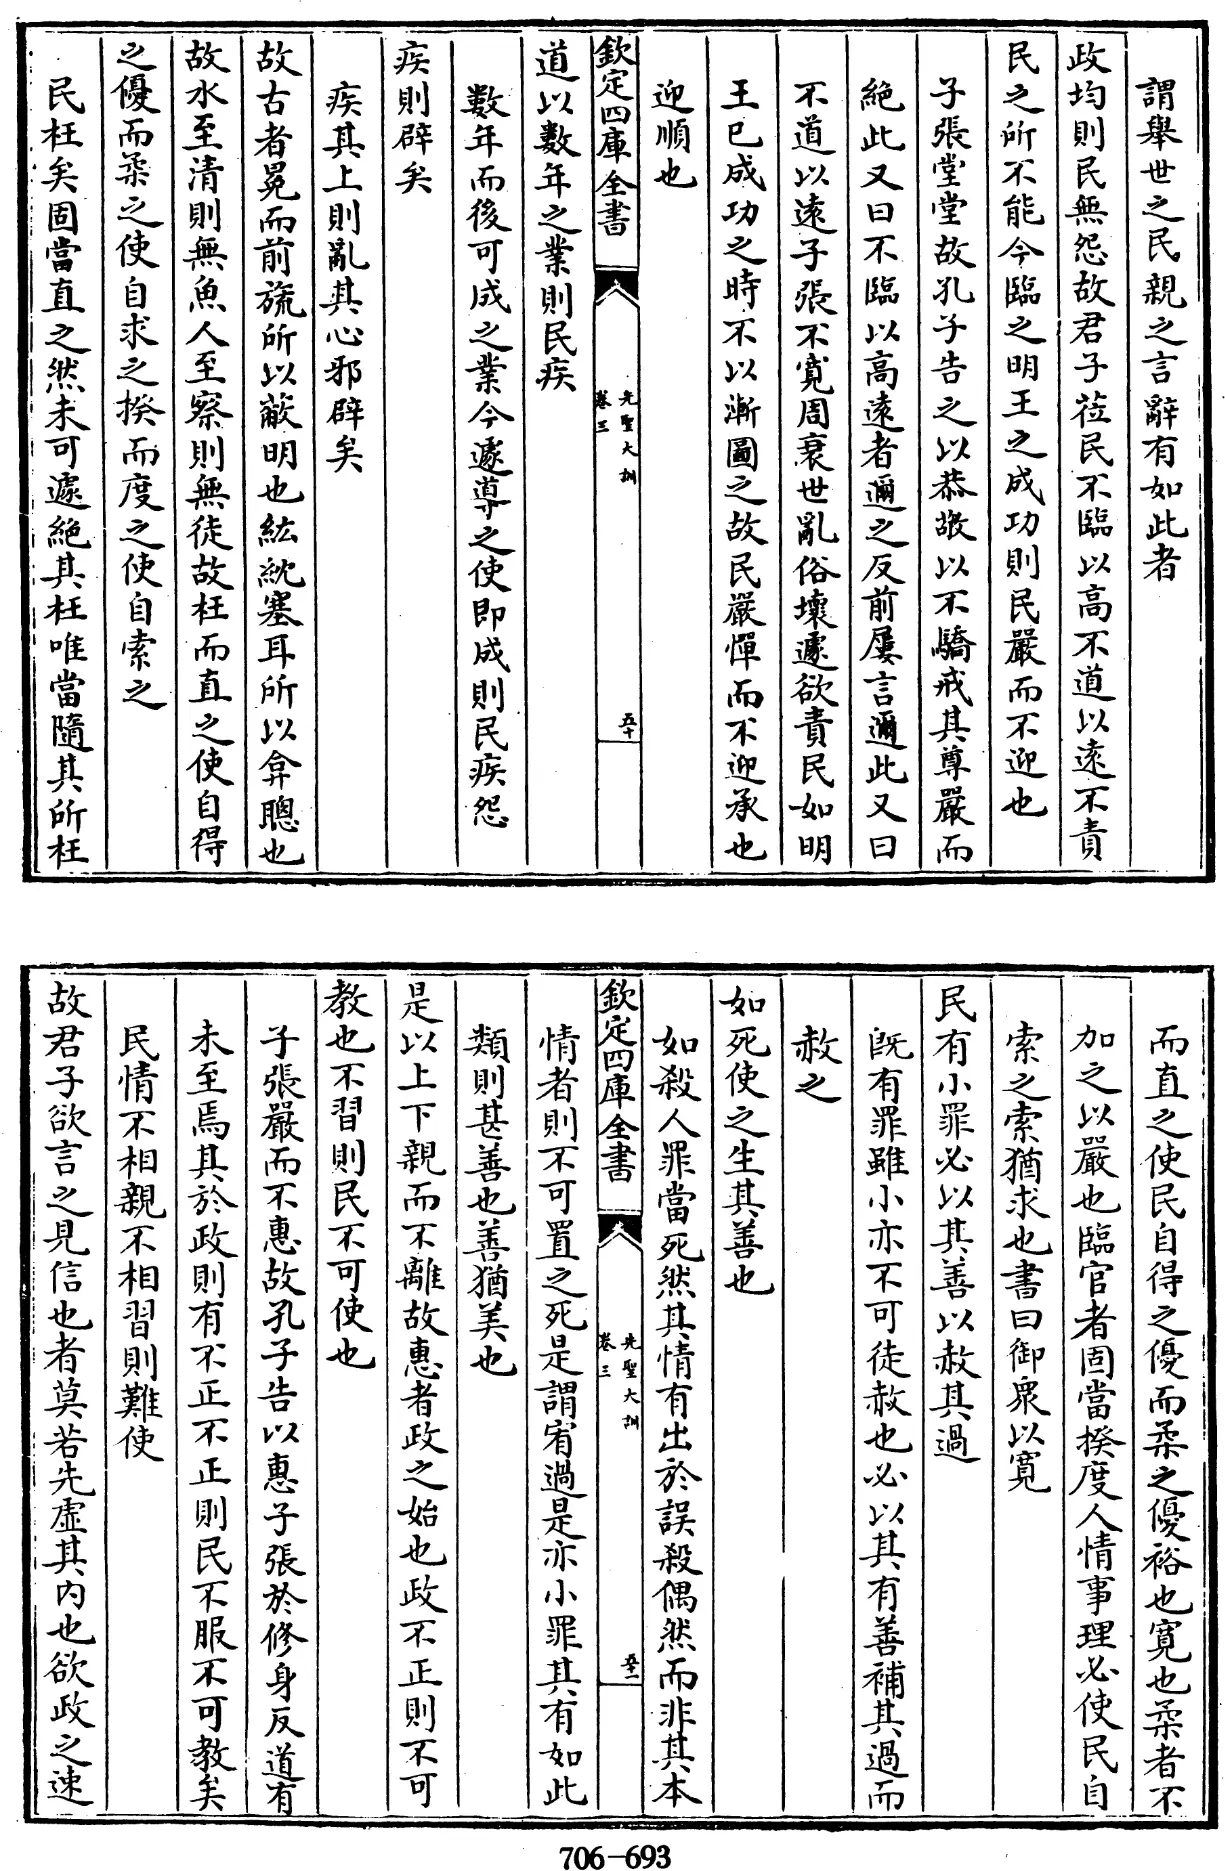 謂舉世之民親之言辭有如此者
政均則民無怨故君子莅民不臨以高不道以遠不責
民之所不能今臨之明王之成功則民嚴而不迎也
子張堂堂故孔子告之以恭敬以不驕戒其尊嚴而
絶此又曰不臨以高遠者邇之反前屢言邇此又曰
不道以遠子張不寛周衰世亂俗壞遽欲責民如明
王已成功之時不以漸圖之故民嚴憚而不迎承也
迎順也
欽定四庫全書
先聖大訓
卷三
五十
道以數年之業則民疾
數年而後可成之業今遽導之使即成則民疾怨
疾則辟矣
疾其上則亂其心邪辟矣
故古者冕而前旒所以蔽明也紘紞塞耳所以弇聰也
故水至清則無魚人至察則無徒故枉而直之使自得
之優而柔之使自求之揆而度之使自索之
民枉矣固當直之然未可遽絶其枉唯當隨其所枉
而直之使民自得之優而柔之優裕也寛也柔者不
加之以嚴也臨官者固當揆度人情事理必使民自
索之索猶求也書曰御衆以寛
民有小罪必以其善以赦其過
既有罪雖小亦不可徒赦也必以其有善補其過而
赦之
如死使之生其善也
如殺人罪當死然其情有出於誤殺偶然而非其本
欽定四庫全書
先聖大訓
卷三
五十一
情者則不可置之死是謂宥過是亦小罪其有如此
類則甚善也善猶美也
是以上下親而不離故惠者政之始也政不正則不可
教也不習則民不可使也
子張嚴而不惠故孔子告以惠子張於修身反道有
未至焉其於政則有不正不正則民不服不可教矣
民情不相親不相習則難使
故君子欲言之見信也者莫若先虛其内也欲政之速
706-693